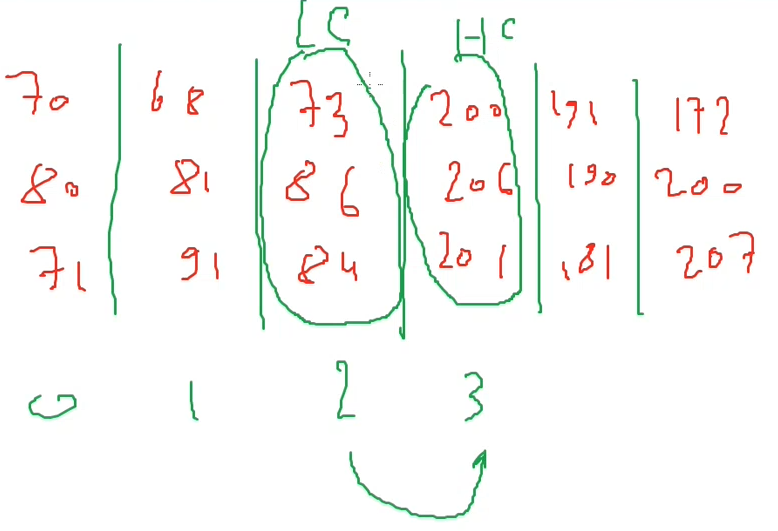 LC HC
70 68 73 200 191 172
80 81 86 206 190 200
71 91 84 201 181 207
0 1 2 3